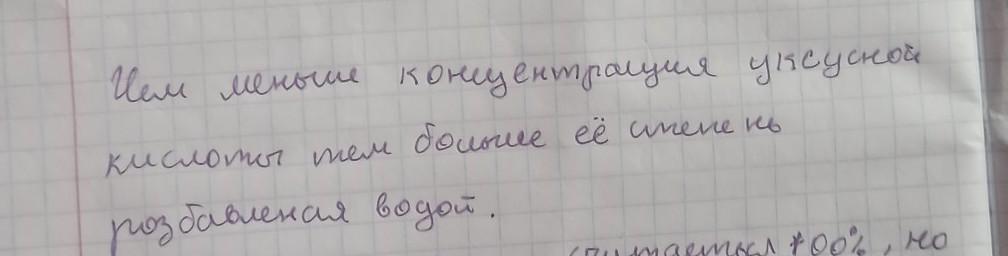 Чем меньше концентрация уксусной
кислоты тем больше её степень
розбавленая водой.
считается 100%, но